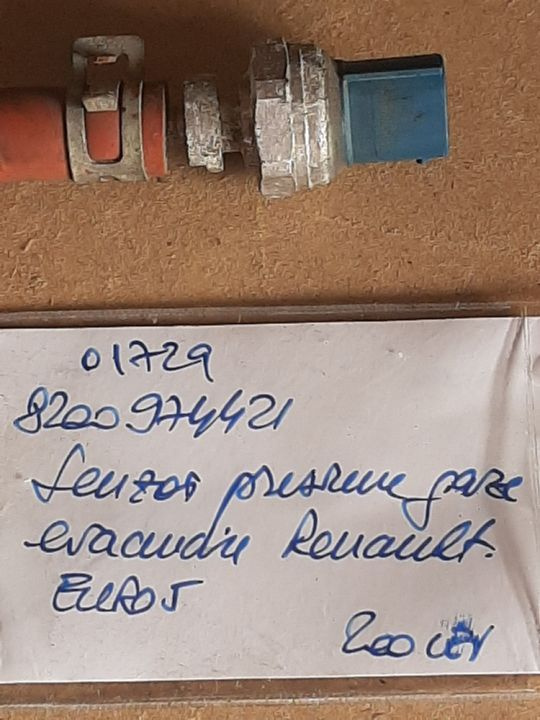 01729
8200974421
Senzor presiune gaze
evacuare Renault.
EURO5
200 LEI